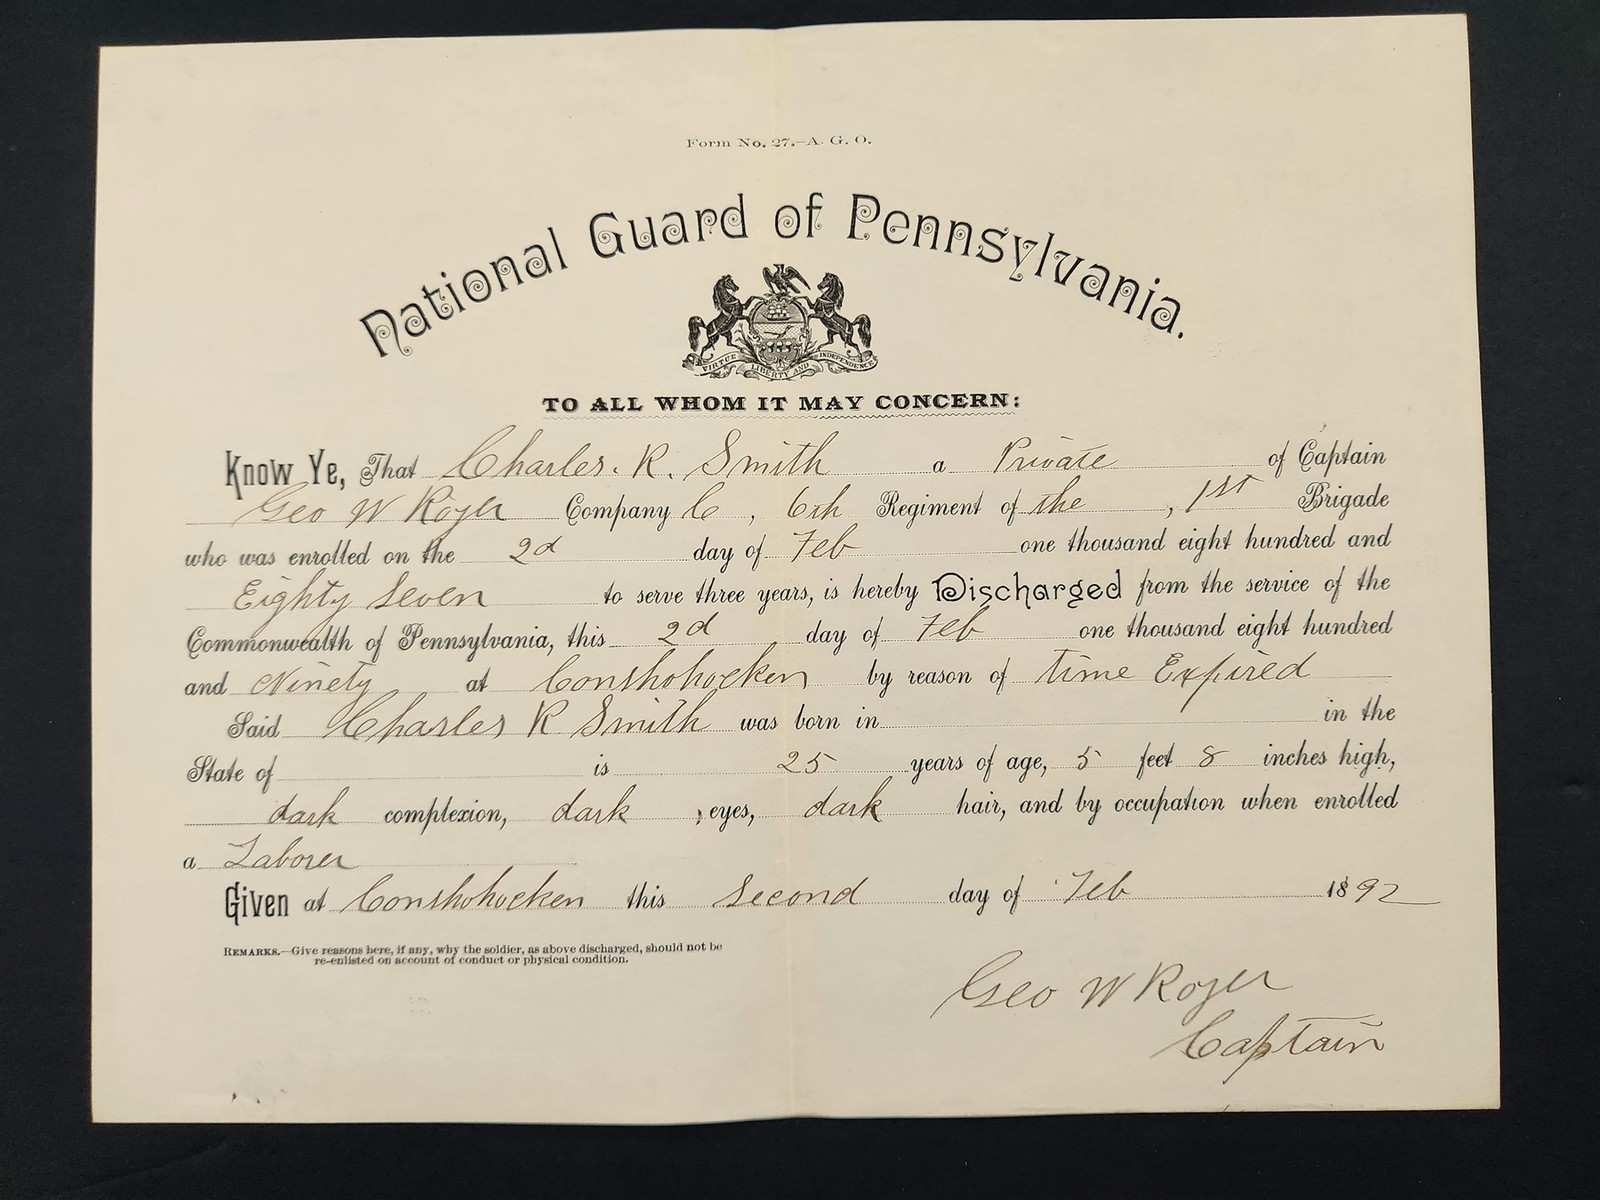 Form No. 27.—A. G. O.
National Guard of Pennsylvania.
VIRTUE LIBERTY AND INDEPENDENCE
TO ALL WHOM IT MAY CONCERN:
Know Ye, That Charles. R. Smith a Private of Captain
Geo W Royer Company C, 6th Regiment of the, 1st Brigade
who was enrolled on the 2d day of Feb one thousand eight hundred and
Eighty Seven to serve three years, is hereby Discharged from the service of the
Commonwealth of Pennsylvania, this 2d day of Feb one thousand eight hundred
and Ninety at Conshohocken by reason of time Expired
Said Charles R Smith was born in in the
State of is 25 years of age, 5 feet 8 inches high,
dark complexion, dark, eyes, dark hair, and by occupation when enrolled
a Laborer
Given at Conshohocken this Second day of Feb 1892
REMARKS.—Give reasons here, if any, why the soldier, as above discharged, should not be
re-enlisted on account of conduct or physical condition.
Geo W Royer
Captain